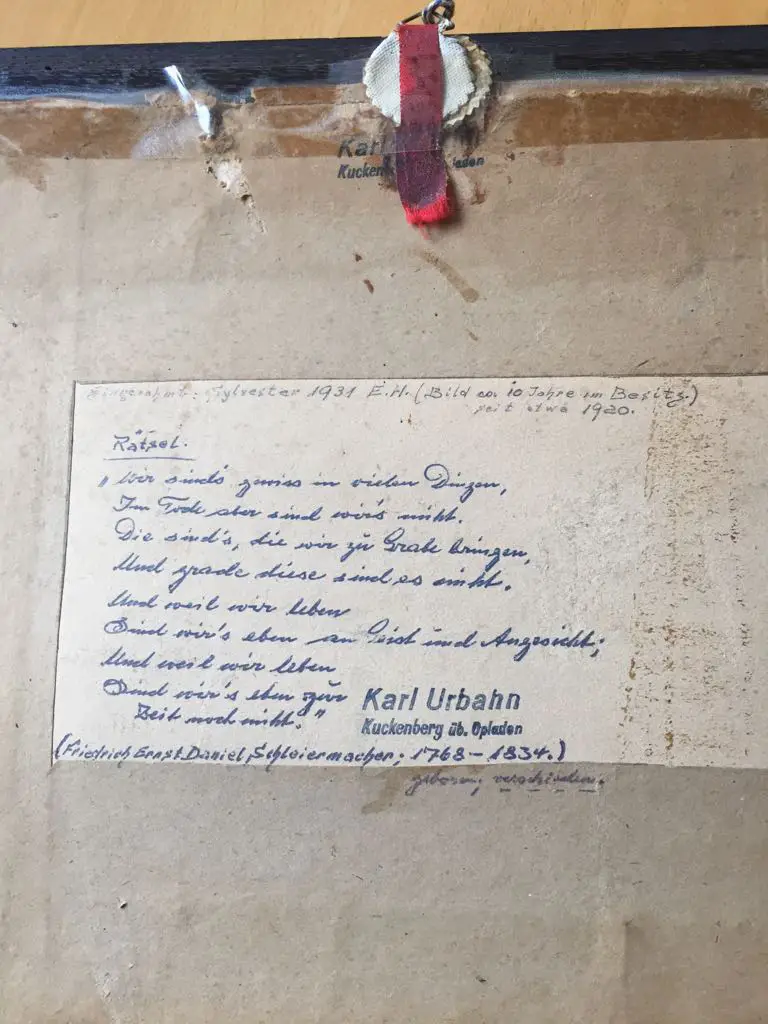 Karl
Kuckenb laden
Eingerahmt: Sylvester 1931 E.H. (Bild ca. 10 Jahre im Besitz.)
seit etwa 1920.
Rätsel.
„Wir sind's gewiss in vielen Dingen,
Im Tode aber sind wir's nicht.
Die sind's, die wir zu Grabe bringen,
Und grade diese sind es nicht.
Und weil wir leben
Sind wir's eben an Geist und Angesicht;
Und weil wir leben
Sind wir's eben zur
Zeit noch nicht."
Karl Urbahn
Kuckenberg üb. Opladen
(Friedrich Ernst Daniel Schleiermacher; 1768 – 1834.)
geboren; verschieden.